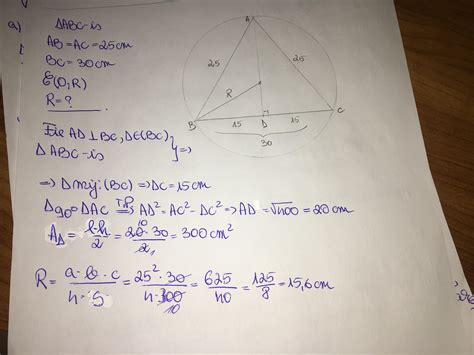 a) ΔABC-is
AB=AC=25cm
BC=30cm
C(O;R)
R=?
A
25
25
R
B
15
D
15
C
30
Fie AD⊥BC, D∈(BC)
ΔABC-is } =>
=> D mij: (BC) => DC=15cm
Δ90° ΔAC =T.P.=> AD²=AC²-DC² => AD=√400=20cm
A_Δ = b·h/2 = 20·30/2 = 300cm²
R = a·b·c/4·S = 25²·30/4·300 = 625/40 = 125/8 = 15,6cm